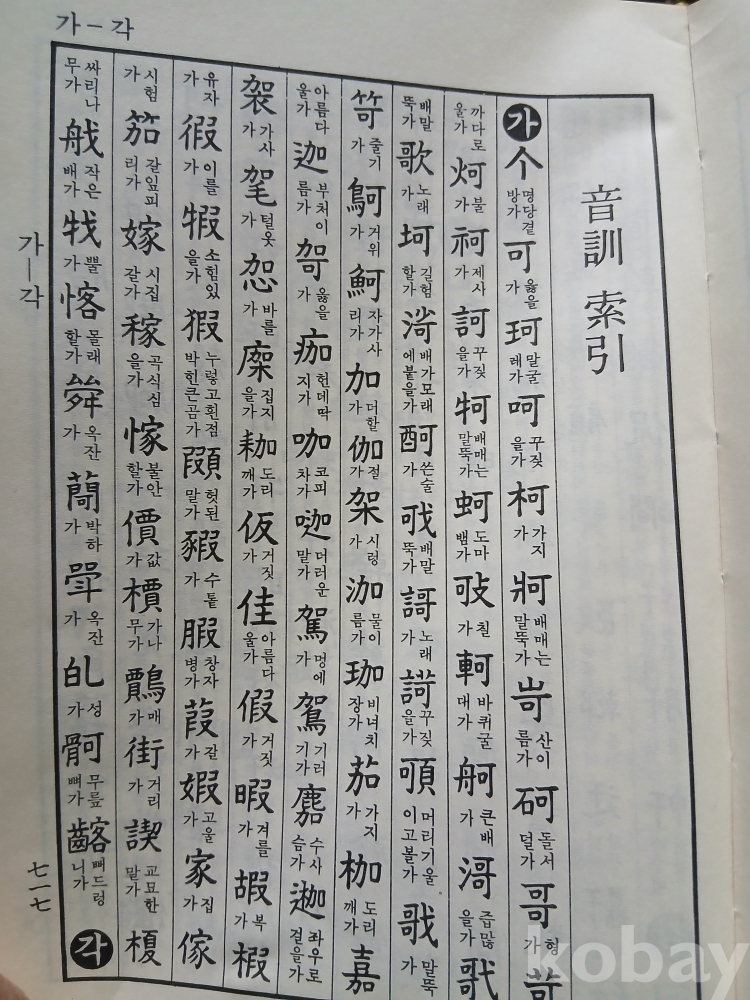 가-각
音訓 索引
가 个 명당곁방가 可 옳을가 珂 말굴레가 呵 꾸짖을가 柯 가지가 牁 배매는말뚝가 岢 산이름가 砢 돌서덜가 哥 형가 苛
까다로울가 炣 불가 제사가 訶 꾸짖을가 牱 배매는말뚝가 蚵 도마뱀가 㪃 칠가 軻 바퀴굴대가 舸 큰배가 滒 즙많을가
배말뚝가 歌 노래가 坷 길험할가 渮 배가모래에붙을가 쓴술가 戓 배말뚝가 謌 노래가 꾸짖을가 머리기울이고볼가 戨 말뚝가
笴 줄기가 鴚 거위가 魺 자가사리가 加 더할가 伽 절가 架 시렁가 泇 물이름가 珈 비녀치장가 茄 가지가 枷 도리깨가 嘉
아름다울가 迦 부처이름가 哿 옳을가 痂 헌데딱지가 咖 코피차가 더러운말가 駕 멍에가 기러기가 수사슴가 좌우로걸을가
袈 가사가 毠 털옷가 바를가 집지을가 耞 도리깨가 仮 거짓가 佳 아름다울가 假 거짓가 暇 겨를가 嘏 복가 椵
유자가 徦 이를가 소힘있을가 猳 누렇고흰점박힌큰곰가 헛된말가 豭 수톹가 腵 창자병가 葭 갈가 婽 고울가 家 집가 傢
시험가 笳 갈잎피리가 嫁 시집갈가 稼 곡식심을가 불안할가 價 값가 檟 가나무가 매가 街 거리가 교묘한말가 榎
싸리나무가 작은배가 뿔가 愘 몰래할가 옥잔가 박하가 斝 옥잔가 성가 무릎뼈가 뼈드렁니가 각
가-각
七一七
kobay